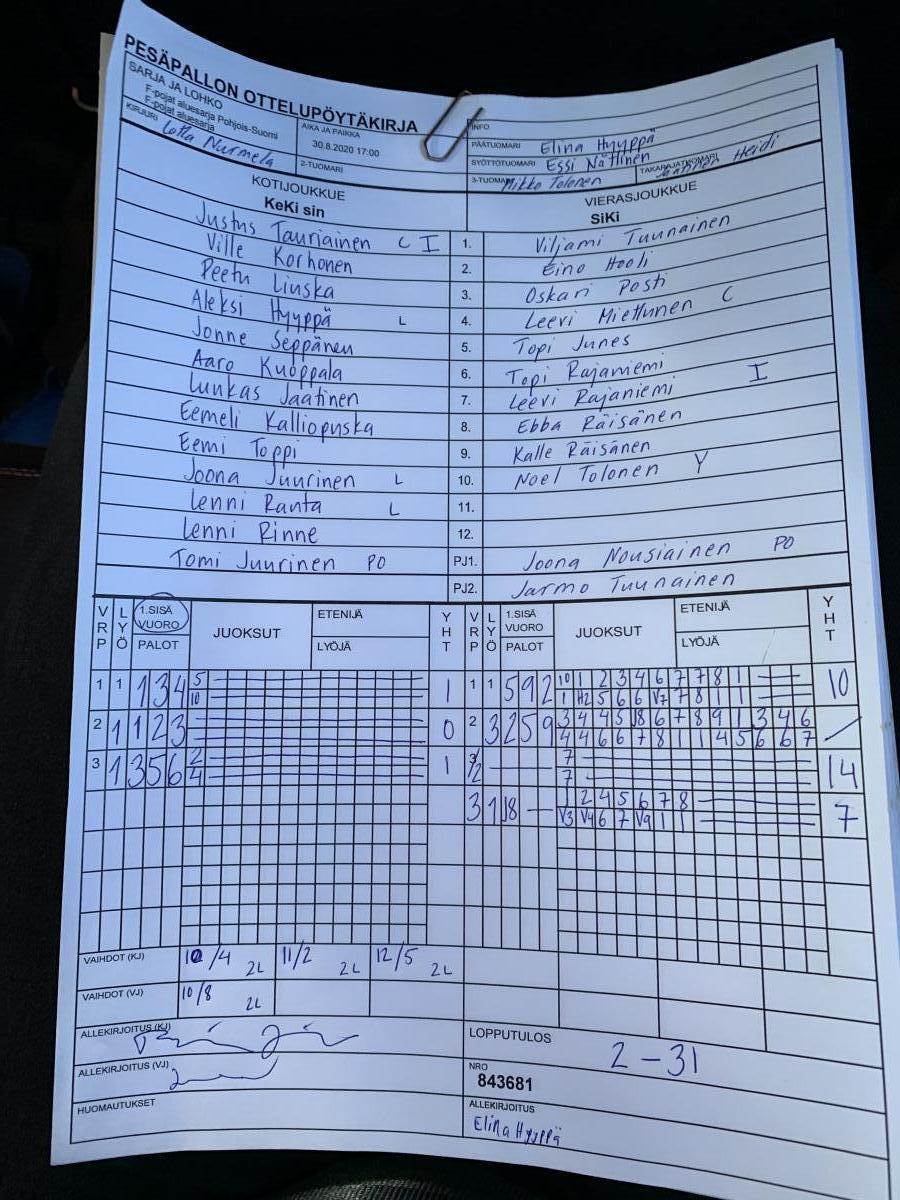 PESÄPALLON OTTELUPÖYTÄKIRJA
SARJA JA LOHKO
F-pojat aluesarja Pohjois-Suomi
F-pojat aluesarja
AIKA JA PAIKKA
30.8.2020 17:00
INFO
PÄÄTUOMARI Elina Hyyppä
KIRJURI Lotta Nurmela
2-TUOMARI
SYÖTTÖTUOMARI Essi Nättinen
TAKARAJATUOMARI Jaatinen Heidi
3-TUOMARI Mikko Tolonen
KOTIJOUKKUE
KeKi sin
VIERASJOUKKUE
SiKi
Justus Tauriainen C I 1. Viljami Tuunainen
Ville Korhonen 2. Eino Hooli
Peetu Liuska 3. Oskari Posti
Aleksi Hyyppä L 4. Leevi Miettunen C
Jonne Seppänen 5. Topi Junes
Aaro Kuoppala 6. Topi Rajaniemi I
Luukas Jaatinen 7. Leevi Rajaniemi
Eemeli Kalliopuska 8. Ebba Räisänen
Eemi Toppi 9. Kalle Räisänen
Joona Juurinen L 10. Noel Tolonen Y
Lenni Ranta L 11.
Lenni Rinne 12.
Tomi Juurinen PO PJ1. Joona Nousiainen PO
PJ2. Jarmo Tuunainen
VRP LYÖ 1.SISÄ VUORO PALOT JUOKSUT ETENIJÄ LYÖJÄ YHT VRP LYÖ 1.SISÄ VUORO PALOT JUOKSUT ETENIJÄ LYÖJÄ YHT
1 1 1 3 4 5 1 1 1 5 9 2 10 1 2 3 4 6 7 7 8 1 10
10 1 H2 5 6 6 V7 7 8 1 1
2 1 1 2 3 0 2 3 2 5 9 3 4 4 5 J8 6 7 8 9 1 3 4 6
4 4 6 6 7 8 1 1 4 5 6 6 7
3 1 3 5 6 2 1 2 7 14
4 7
3 1 J8 – 1 2 4 5 6 7 8 7
V3 V4 6 7 V9 1 1
VAIHDOT (KJ) 10/4 2L 11/2 2L 12/5 2L
VAIHDOT (VJ) 10/8 2L
ALLEKIRJOITUS (KJ)
LOPPUTULOS 2 - 31
ALLEKIRJOITUS (VJ)
NRO
843681
HUOMAUTUKSET
ALLEKIRJOITUS
Elina Hyyppä